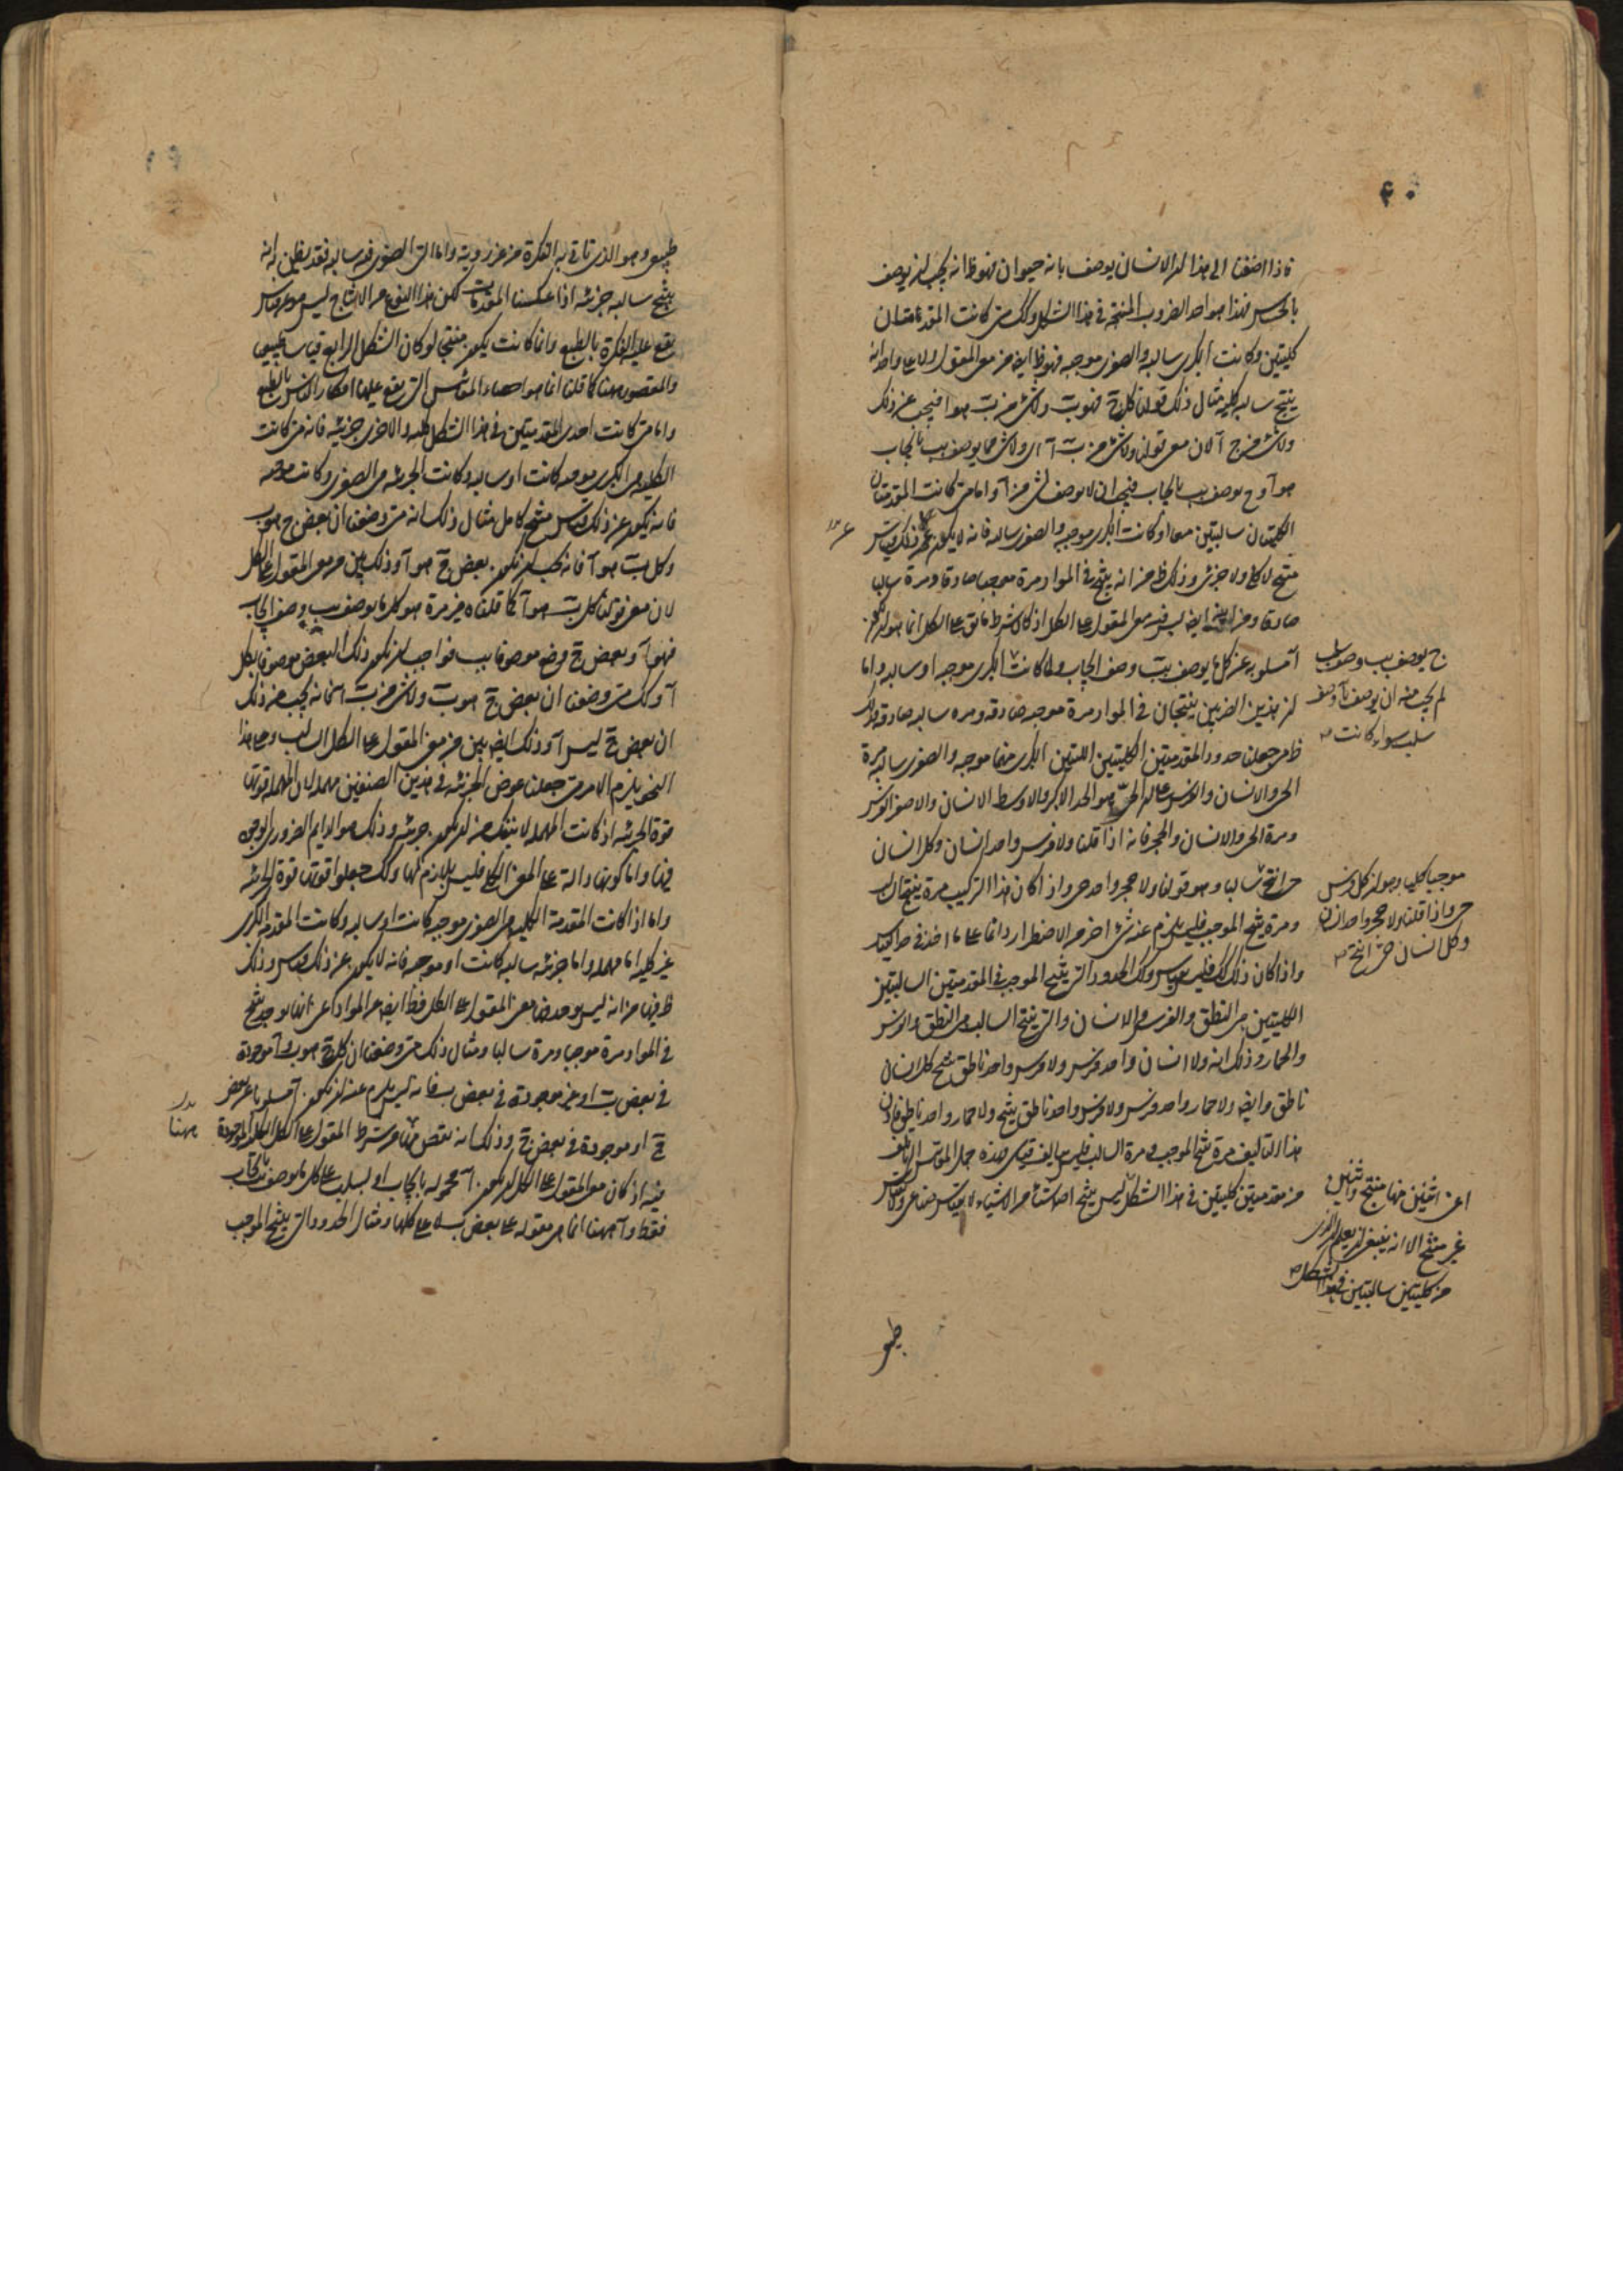 ۶۰
فاذا اضفنا الى هذا ان الانسان يوصف بانه حيوان فهو ظ انه يجب ان يوصف
بالحس فهذا هو احد الضروب المنتجة في هذا الشكل وكك متى كانت المقدمتان
كليتين وكانت الكبرى سالبه والصغرى موجبه فهو ظ ايض من معنى المقول ولا على واحد انه
ينتج سالبه كليه مثال ذلك قولنا كل ج فهو ب ولا شئ من ب هو ا فينتج عن ذلك
ولا شئ من ج آ لان معنى قولنا ولا شئ من ب آ اى ولا شئ مما يوصف ب‍ب بايجاب
هو آ و ج يوصف ب‍ب بايجاب فيجب ان لا يوصف شئ من آ واما متى كانت المقدمتان
الكليتان سالبتين معا او كانت الكبرى موجبه والصغرى سالبه فانه لا يكون عن ذلك قياس
منتج لا كلى ولا جزئى وذلك ظ من انه ينتج في المواد مرة موجبا صادقا ومرة سالبا
صادقا ومن انه ايض ليس فيه معنى المقول على الكل اذ كان شرط ما يق على الكل انما هو ان يكون
آ مسلوبه عن كل ما يوصف ب‍ب وصف ايجاب ولما كانت الكبرى موجبه او سالبه واما
ان هذين الضربين ينتجان في المواد مرة موجبه صادقه ومره سالبه صادقه فذلك
ظ متى جعلنا حدود المقدمتين الكليتين اللتين الكبرى منهما موجبه والصغرى سالبه مرة
الحى والانسان والفرس على ان الحى هو الحد الاكبر والاوسط الانسان والاصغر الفرس
ومرة الحى والانسان والحجر فانه اذا قلنا ولا فرس واحد انسان وكل انسان
حى انتج سالبا وهو قولنا ولا حجر واحد حى واذا كان هذا التركيب مرة ينتج السالب
ومرة ينتج الموجب فليس يلزم عنه شئ اخر من الاضطرار دائما على ما اخذ في حد القياس
واذا كان ذلك كك فليس بقياس وكك الحدود التى ينتج الموجب في المقدمتين السالبتين
الكليتين هى النطق والفرس والانسان والتى ينتج السالب هى النطق والفرس
والحمار وذلك انه ولا انسان واحد فرس ولا فرس واحد ناطق ينتج كل انسان
ناطق وايض ولا حمار واحد فرس ولا فرس واحد ناطق ينتج ولا حمار واحد ناطق فاذن
هذا التاليف مرة ينتج الموجب ومرة السالب فليس بتاليف قياسى فهذه جملة المقاييس التى تاتلف
من مقدمتين كليتين في هذا الشكل ليس ينتج اصلا شيئا من الاشياء لا بقياس صناعى ولا بقياس
ج يوصف ب‍ب وصف سلب
لم يجب منه ان يوصف بآ وصف
سلب سواء كانت
موجبا كليا وهو ان كل فرس
حى واذا قلنا ولا حجر واحد انسان
وكل انسان حى انتج
اعنى اثنين منها منتج واثنين
غير منتج الا انه ينبغى ان يعلم ان الذى
من كليتين سالبتين في هذا الشكل
طبيعى
طبيعى وهو الذى تاتى به الفكرة من غير روية واما التى الصغرى فيه سالبه فقد يظن انه
ينتج سالبه جزئيه اذا عكسنا المقدمات لكن هذا النوع من الانتاج ليس هو عن قياس
يقع عليه الفكرة بالطبع وانما كانت يكون منتجا لو كان الشكل الرابع قياسا طبيعيا
والمقصود ههنا كما قلنا انما هو احصاء المقاييس التى يقع عليها افكار الناس بالطبع
واما متى كانت احدى المقدمتين في هذا الشكل كليه والاخرى جزئيه فانه متى كانت
الكليه هى الكبرى موجبه كانت او سالبه وكانت الجزئيه هى الصغرى وكانت موجبه
فانه يكون عن ذلك قياس منتج كامل مثال ذلك انه متى وضعنا ان بعض ج هو ب
وكل ب هو آ فانه يجب ان يكون بعض ج هو آ وذلك بين من معنى المقول على الكل
لان معنى قولنا كل ب هو آ كما قلناه غير مرة هو كل ما يوصف ب‍ب وصف ايجاب
فهو آ وبعض ج وضع موصوفا ب‍ب فواجب ان يكون ذلك البعض موصوفا بكل
آ وكك متى وضعنا ان بعض ج هو ب ولا شئ من ب آ فانه يجب من ذلك
ان بعض ج ليس آ وذلك ايض بين من معنى المقول على الكل السالب وعلى هذا
النحو يلزم الامر متى جعلنا عوض الجزئيه في هذين الصنفين مهمله لان المهمله قوتها
قوة الجزئيه اذ كانت المهمله لا ينفك من ان يكون جزئيه وذلك هو الدايم الضرورى الوجود
فيها واما كونها دالة على المعنى الكلى فليس بلازم لها ولذلك جعلوا قوتها قوة الجزئيه
واما اذا كانت المقدمة الكليه هى الصغرى موجبه كانت او سالبه وكانت المقدمه الكبرى
غير كليه اما مهمله واما جزئيه سالبه كانت او موجبه فانه لا يكون عن ذلك قياس وذلك
ظ فيها من انه ليس يوجد فيها معنى المقول على الكل فظ ايض من المواد اعنى انها يوجد ينتج
في المواد مرة موجبا ومرة سالبا ومثال ذلك متى وضعنا ان كل ج هو ب و آ موجودة
في بعض ب او غير موجودة في بعض ب فانه ليس يلزم عنه ان يكون آ مسلوبا عن بعض
ج او موجودة في بعض ج وذلك انه نقص منها من شرط المقول على الكل الكليه الموجودة
فيه اذ كان معنى المقول على الكل ان يكون آ محمولة بايجاب او بسلب على كل ما يوصف ب‍ب بايجاب
فقط و آ ههنا انما هى مقوله على بعض ب لا على كلها ومثال الحدود التى ينتج الموجب
ههنا